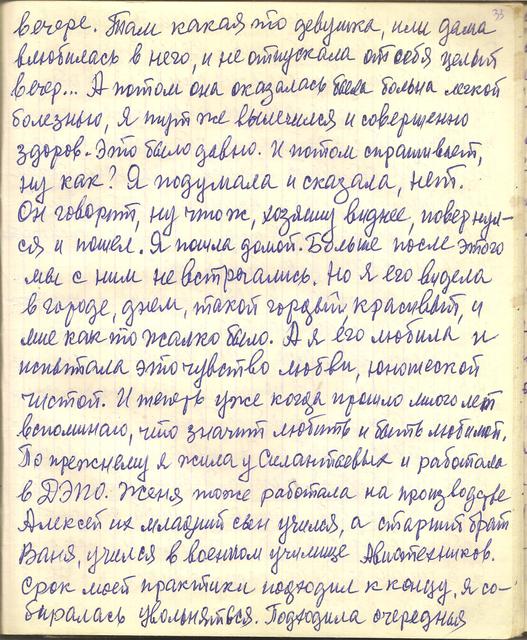 33
вечере. Там какая то девушка, или дама
влюбилась в него, и не отпускала от себя целый
вечер... А потом она оказалась была больна легкой
болезнью, Я тут же вылечился и совершенно
здоров. Это было давно. И потом спрашивает,
ну как? Я подумала и сказала, нет.
Он говорит, ну что ж, хозяину виднее, повернул-
ся и пошел. Я пошла домой. Больше после этого
мы с ним не встречались. Но я его видела
в городе, днем, такой гордый красивый, и
мне как то жалко было. А я его любила и
испытала это чувство любви, юношеской
чистой. И теперь уже когда прошло много лет
вспоминаю, что значит любить и быть любимой.
По прежнему я жила у Силантьевых и работала
в ДЭПО. Женя тоже работала на производстве
Алексей их младший сын учился, а старший брат
Ваня, учился в военном училище Авиатехников.
Срок моей практики подходил к концу, я со-
биралась увольняться. Подходила очередная